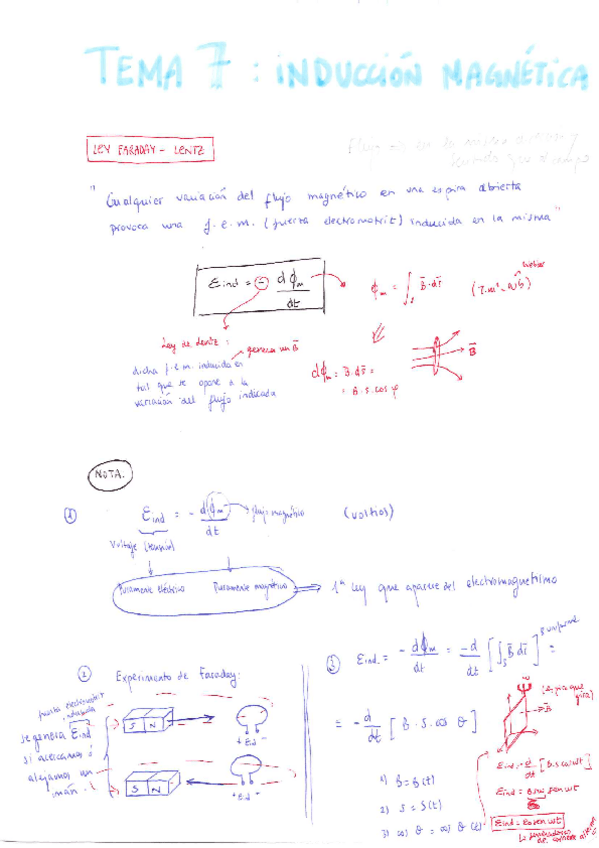 TEMA 7 : INDUCCIÓN MAGNÉTICA
LEY FARADAY - LENTZ
"Cualquier variación del flujo magnético en una espira abierta
provoca una f.e.m. (fuerza electromotriz) inducida en la misma"
Eind = - dϕm / dt
ϕm = ∫s B̄·ds̄ (T·m² = wb)
weber
Ley de Lentz :
genera un B̄
dicha f.e.m. inducida es
tal que se opone a la
variación del flujo indicada
dϕm = B̄·ds̄ =
= B·s·cos φ
B̄
NOTA.
1 Eind = - dϕm / dt flujo magnético (voltios)
Voltaje (tensión)
Puramente eléctrico Puramente magnético 1ª Ley que aparece del electromagnetismo
2 Experimento de Faraday:
fuerza electromotriz
inducida
se genera Eind
si acercamos ó
alejamos un
imán
S N
+ Eind -
S N
+ Eind -
3 Eind. = - dϕm / dt = -d / dt [∫s B̄ ds̄] B uniforme =
= - d / dt [B · S · cos θ]
1) B = B(t)
2) S = S(t)
3) cos θ = cos θ(t)
(espira que
gira)
B̄
Eind = -d / dt [B·S·cos wt]
Eind = B·S·w sen wt
Eind = Eo sen wt